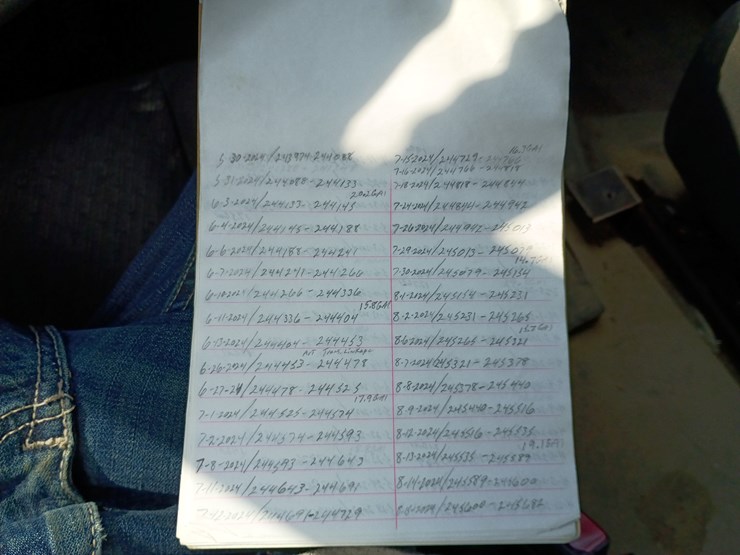 5-30-2024/243974-244088
5-31-2024/244088-244133
20.2 GAl
6-3-2024/244133-244145
6-4-2024/244145-244188
6-6-2024/244188-244241
6-7-2024/244241-244266
6-10-2024/244266-244336
15.8 GAl
6-11-2024/244336-244404
6-13-2024/244404-244453
6-26-2024/244453-244478
6-27-24/244478-244525
17.9 GAl
7-1-2024/244525-244574
7-2-2024/244574-244593
7-8-2024/244593-244643
7-11-2024/244643-244691
7-12-2024/244691-244729
GAl
7-15-2024/244729-244766
7-16-2024/244766-244818
7-18-2024/244818-244844
7-24-2024/244844-244942
7-26-2024/244942-245013
7-29-2024/245013-245079
14.7 GAl
7-30-2024/245079-245154
8-1-2024/245154-245231
8-2-2024/245231-245265
GAl
8-6-2024/245265-245321
8-7-2024/245321-245378
8-8-2024/245378-245440
8-9-2024/245440-245516
8-12-2024/245516-245535
19.1 GAl
8-13-2024/245535-245589
8-14-2024/245589-245600
8-15-2024/245600-245682